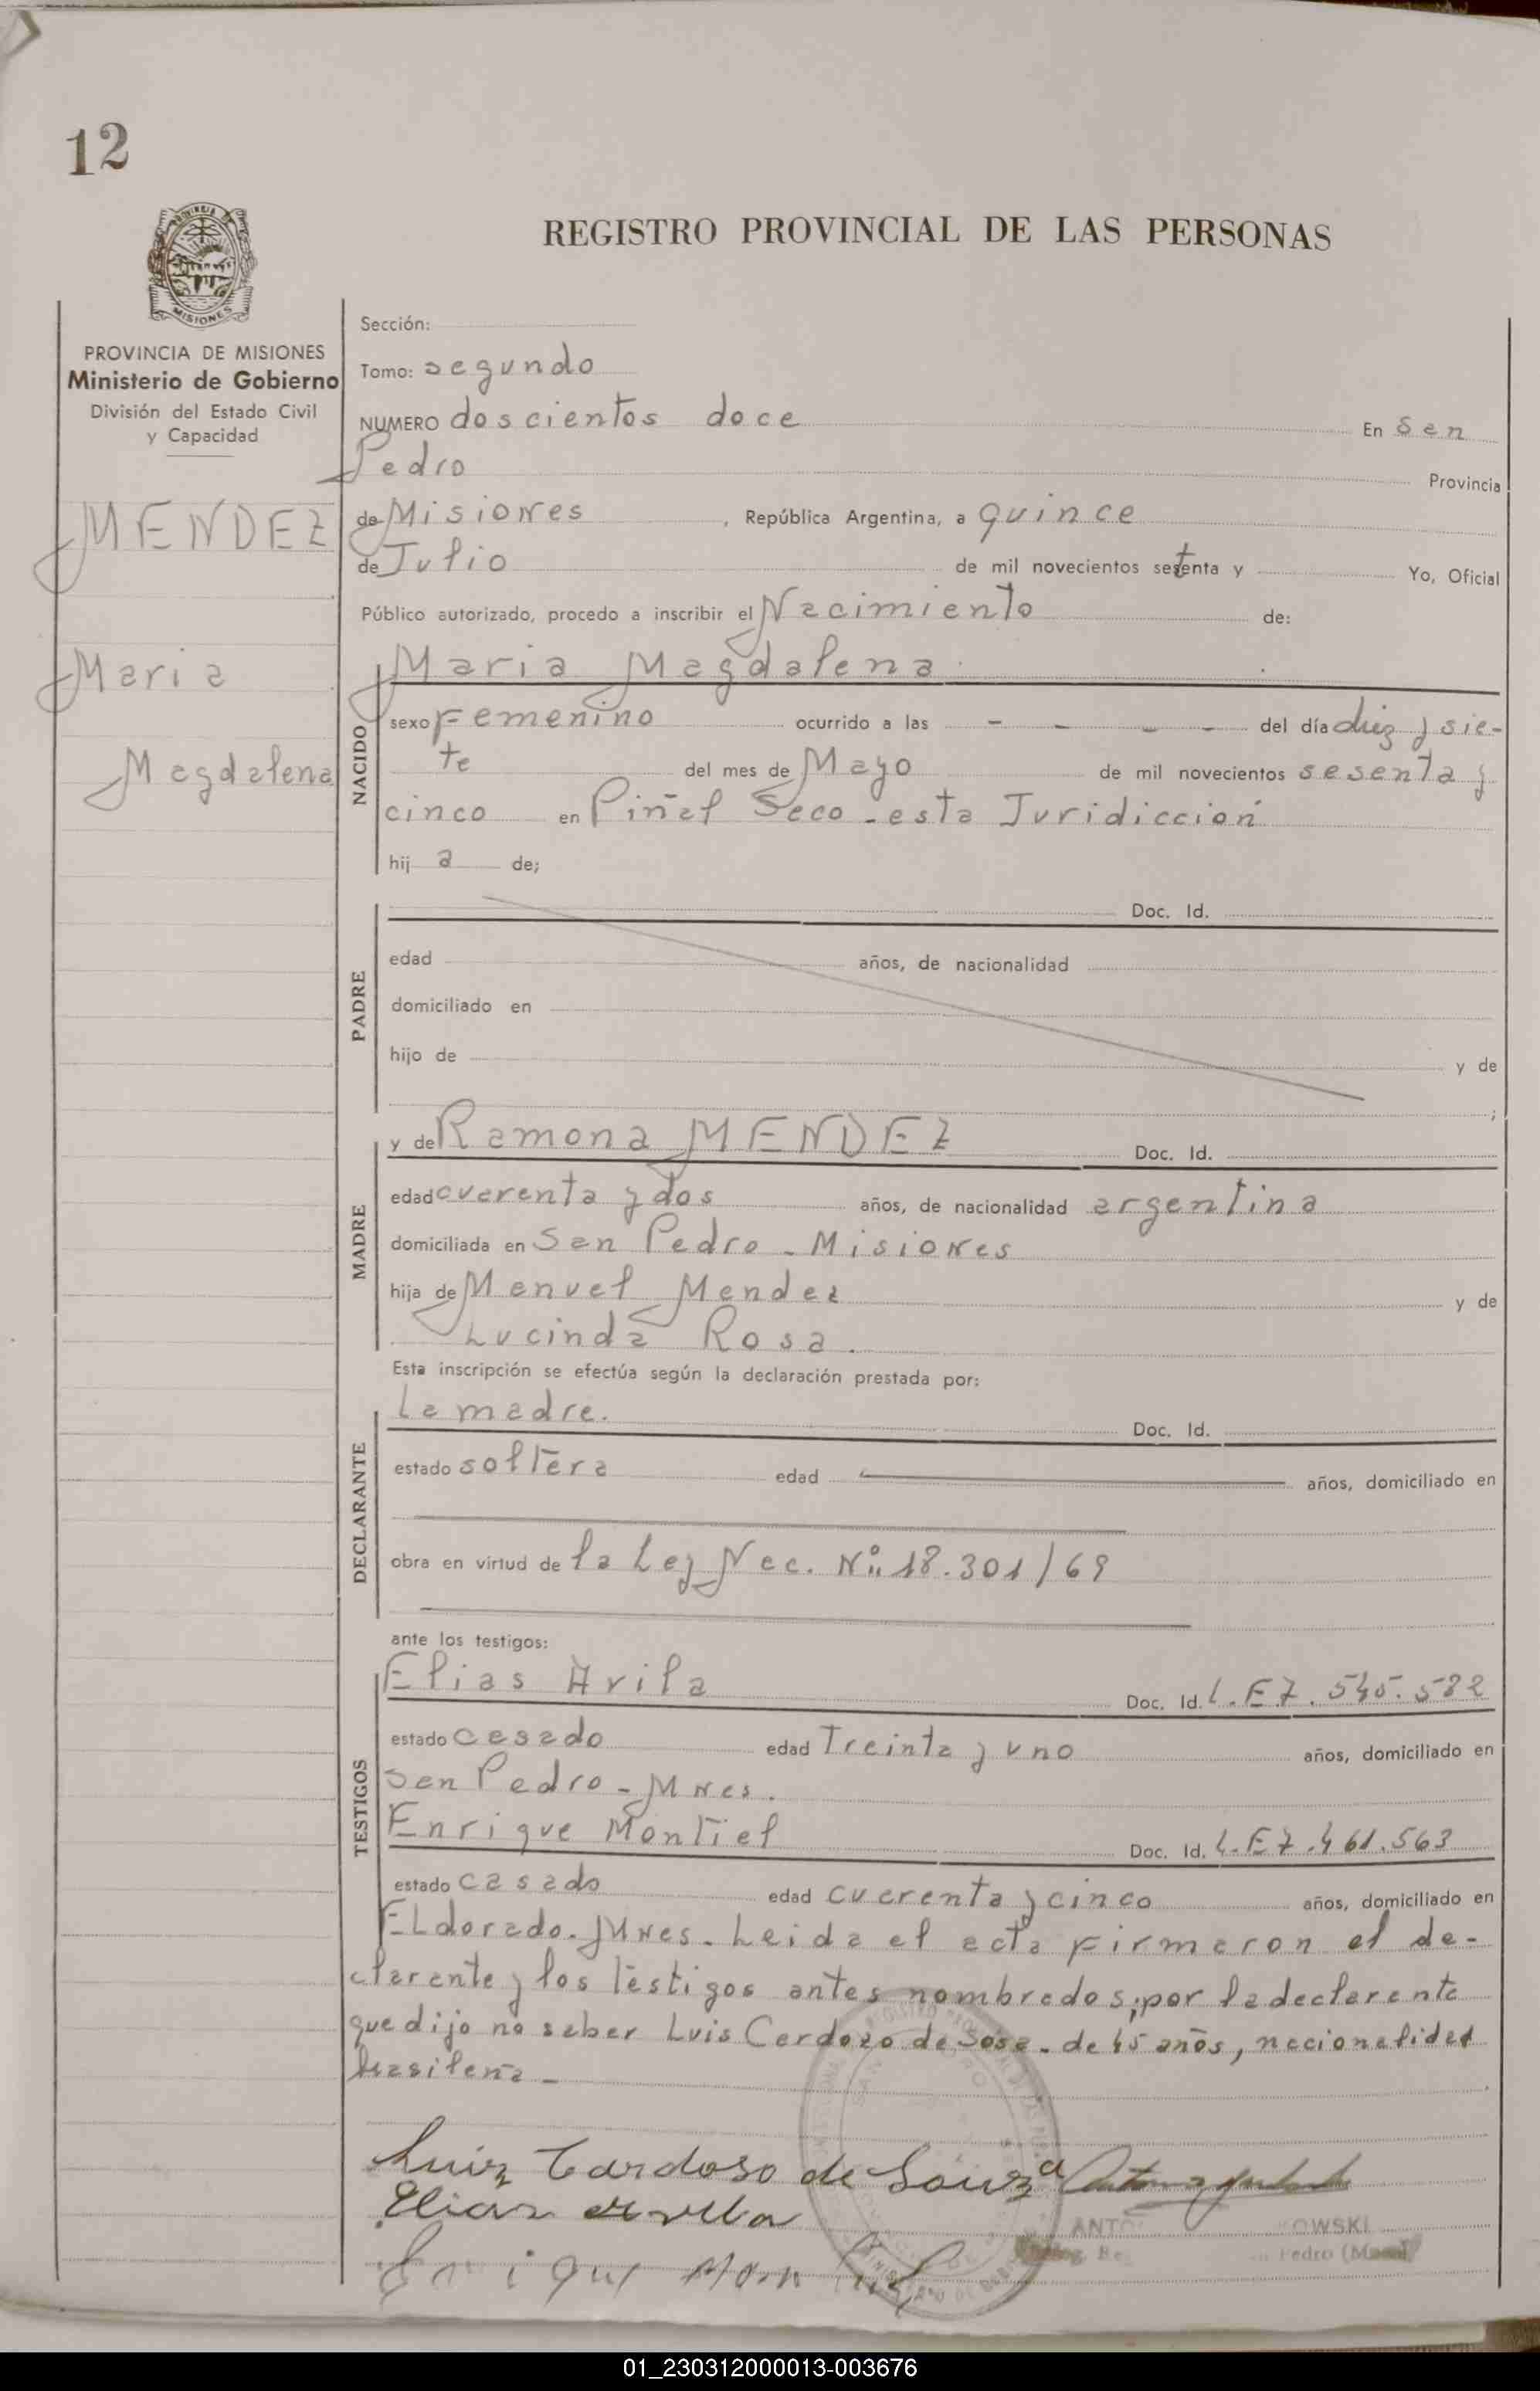 12
REGISTRO PROVINCIAL DE LAS PERSONAS
MISIONES
PROVINCIA DE MISIONES
Ministerio de Gobierno
División del Estado Civil
y Capacidad
MENDEZ
Maria
Magdalena
Sección:
Tomo: segundo
NUMERO doscientos doce En San
Pedro Provincia
de Misiones, República Argentina, a quince
de Julio de mil novecientos setenta y Yo, Oficial
Público autorizado, procedo a inscribir el Nacimiento de:
NACIDO
Maria Magdalena
sexo Femenino ocurrido a las - - - - del día diez y sie-
te del mes de Mayo de mil novecientos sesenta y
cinco en Piñal Seco - esta Juridiccion
hij a de;
PADRE
Doc. Id.
edad años, de nacionalidad
domiciliado en
hijo de y de
;
MADRE
y de Ramona MENDEZ Doc. Id.
edad cuarenta y dos años, de nacionalidad argentina
domiciliada en San Pedro - Misiones
hija de Manuel Mendez y de
Lucinda Rosa.
Esta inscripción se efectúa según la declaración prestada por:
DECLARANTE
La madre. Doc. Id.
estado soltera edad años, domiciliado en
obra en virtud de la Ley Nac. Nº 18.301/69
ante los testigos:
TESTIGOS
Elias Avila Doc. Id. L.E 7.545.582
estado casado edad Treinta y uno años, domiciliado en
San Pedro - Mnes.
Enrique Montiel Doc. Id. L.E 7.461.563
estado casado edad cuarenta y cinco años, domiciliado en
ELdorado. Mnes. Leida el acta Firmaron el de-
clarante y los testigos antes nombrados; por la declarante
que dijo no saber Luis Cardozo de Sosa - de 45 años, nacionalidad
brasileña -
Luiz Cardoso de Souza
Elias Avila
Enrique Montiel
ANTO OWSKI
Pedro
01_230312000013-003676